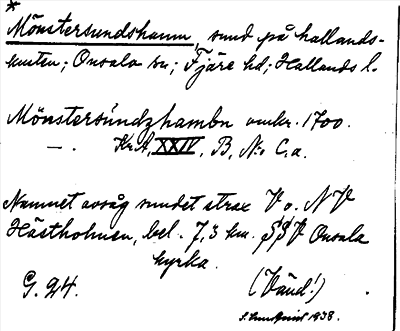 *
Mönstersundshamn, sund på hallands-
kusten; Onsala sn; Fjäre hd; Hallands l.
Mönstersúndzhambn omkr. 1700.
—. Kr.A, XXIV, B, No C,a.
Namnet avsåg sundet strax V o. NV
Hästholmen, bel. 7,3 km. SSV Onsala
kyrka.
G. 24. (Vänd!)
S. 1938.